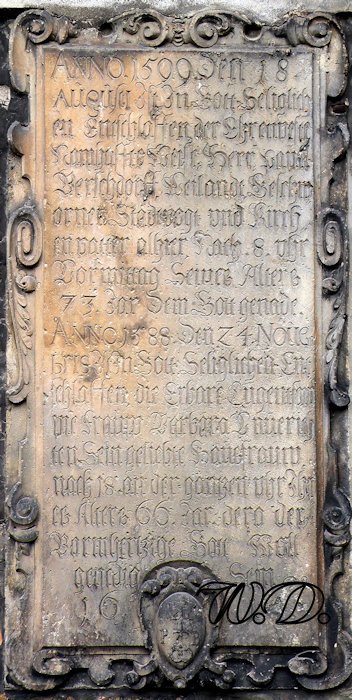 ANNO. 1599. Den 18
AUGUSTI Ist In Gott Seliglich
en Entschlaffen der Ehrenveste
Herr
Weilandt
Stadvogt und Kirch
en vatter alhier Nach. 8. uhr
Vormittag Seines Alters
73. Jar Dem Gott genade.
ANNO. 1588. Den 24. NOVE
BRIS Ist In Gott Seliglichen En
schlaffen die Erbare Tugentsa
me Fraw Barbara
ten Sein geliebte Hausfraw
nach 18. an der gantzen uhr Ihr
es Alters 66. Jar. dero der
Barmhertzige Gott Woll
genedig Sein
16
W.D.